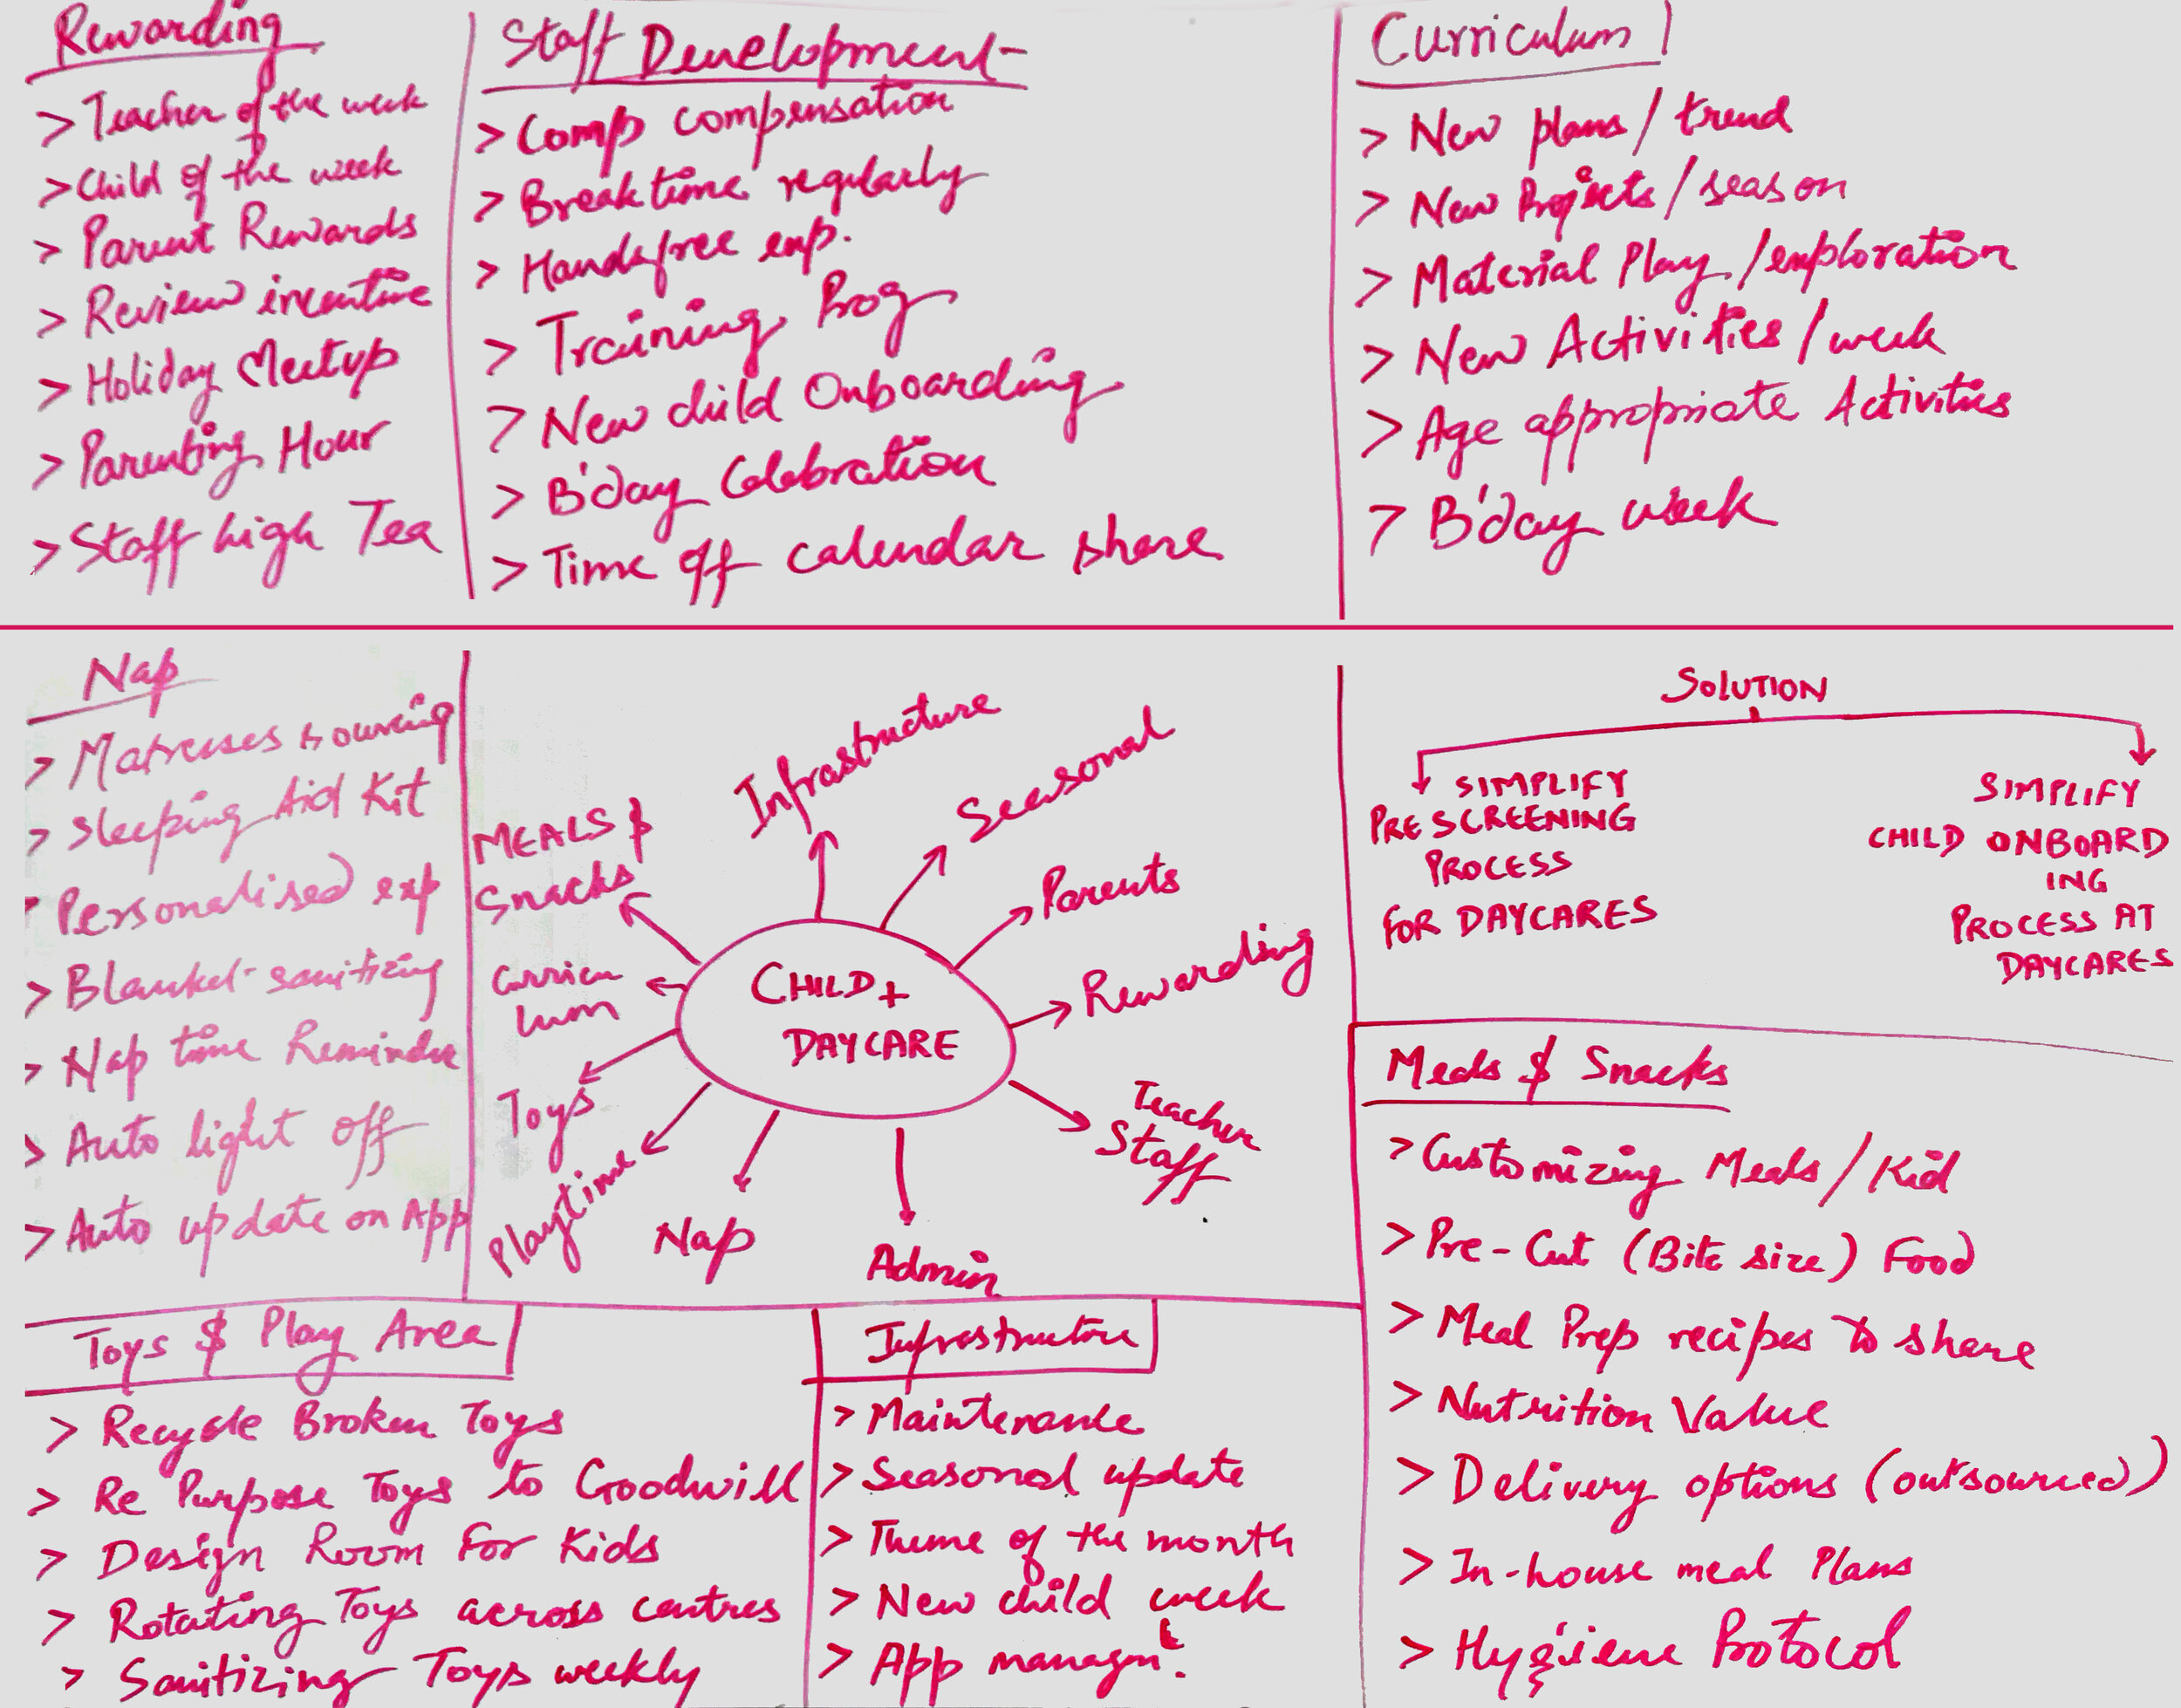 Rewarding
> Teacher of the week
> Child of the week
> Parent Rewards
> Review incentive
> Holiday Meetup
> Parenting Hour
> Staff high Tea
Staff Development
> Comp compensation
> Break time regularly
> Handsfree exp.
> Training Prog
> New child Onboarding
> B'day Celebration
> Time off calendar share
Curriculum
> New plans / trend
> New Projects / season
> Material Play / exploration
> New Activities / week
> Age appropriate Activities
> B'day week
Nap
> Matresses sourcing
> Sleeping Aid Kit
> Personalised exp
> Blanket sanitizing
> Nap time Reminder
> Auto light off
> Auto update on App
Infrastructure
Seasonal
MEALS &
Snacks
Parents
Rewarding
Curricu
lum
CHILD +
DAYCARE
Toys
Teacher
Staff
Playtime
Nap
Admin
SOLUTION
SIMPLIFY
PRE SCREENING
PROCESS
FOR DAYCARES
SIMPLIFY
CHILD ONBOARD
ING
PROCESS AT
DAYCARES
Meals & Snacks
> Customizing Meals / Kid
> Pre-Cut (Bite size) Food
> Meal Prep recipes to share
> Nutrition Value
> Delivery options (outsourced)
> In-house meal Plans
> Hygiene Protocol
Toys & Play Area
> Recycle Broken Toys
> Re Purpose Toys to Goodwill
> Design Room For Kids
> Rotating Toys across centres
> Sanitizing Toys weekly
Infrastructure
> Maintenance
> Seasonal update
> Theme of the month
> New child week
> App managmt.